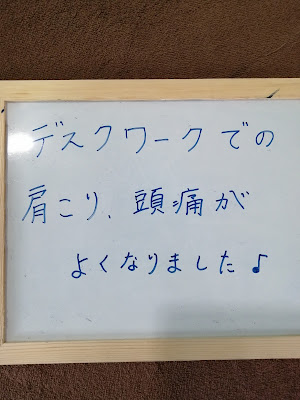 デスクワークでの
肩こり、頭痛が
よくなりました♪